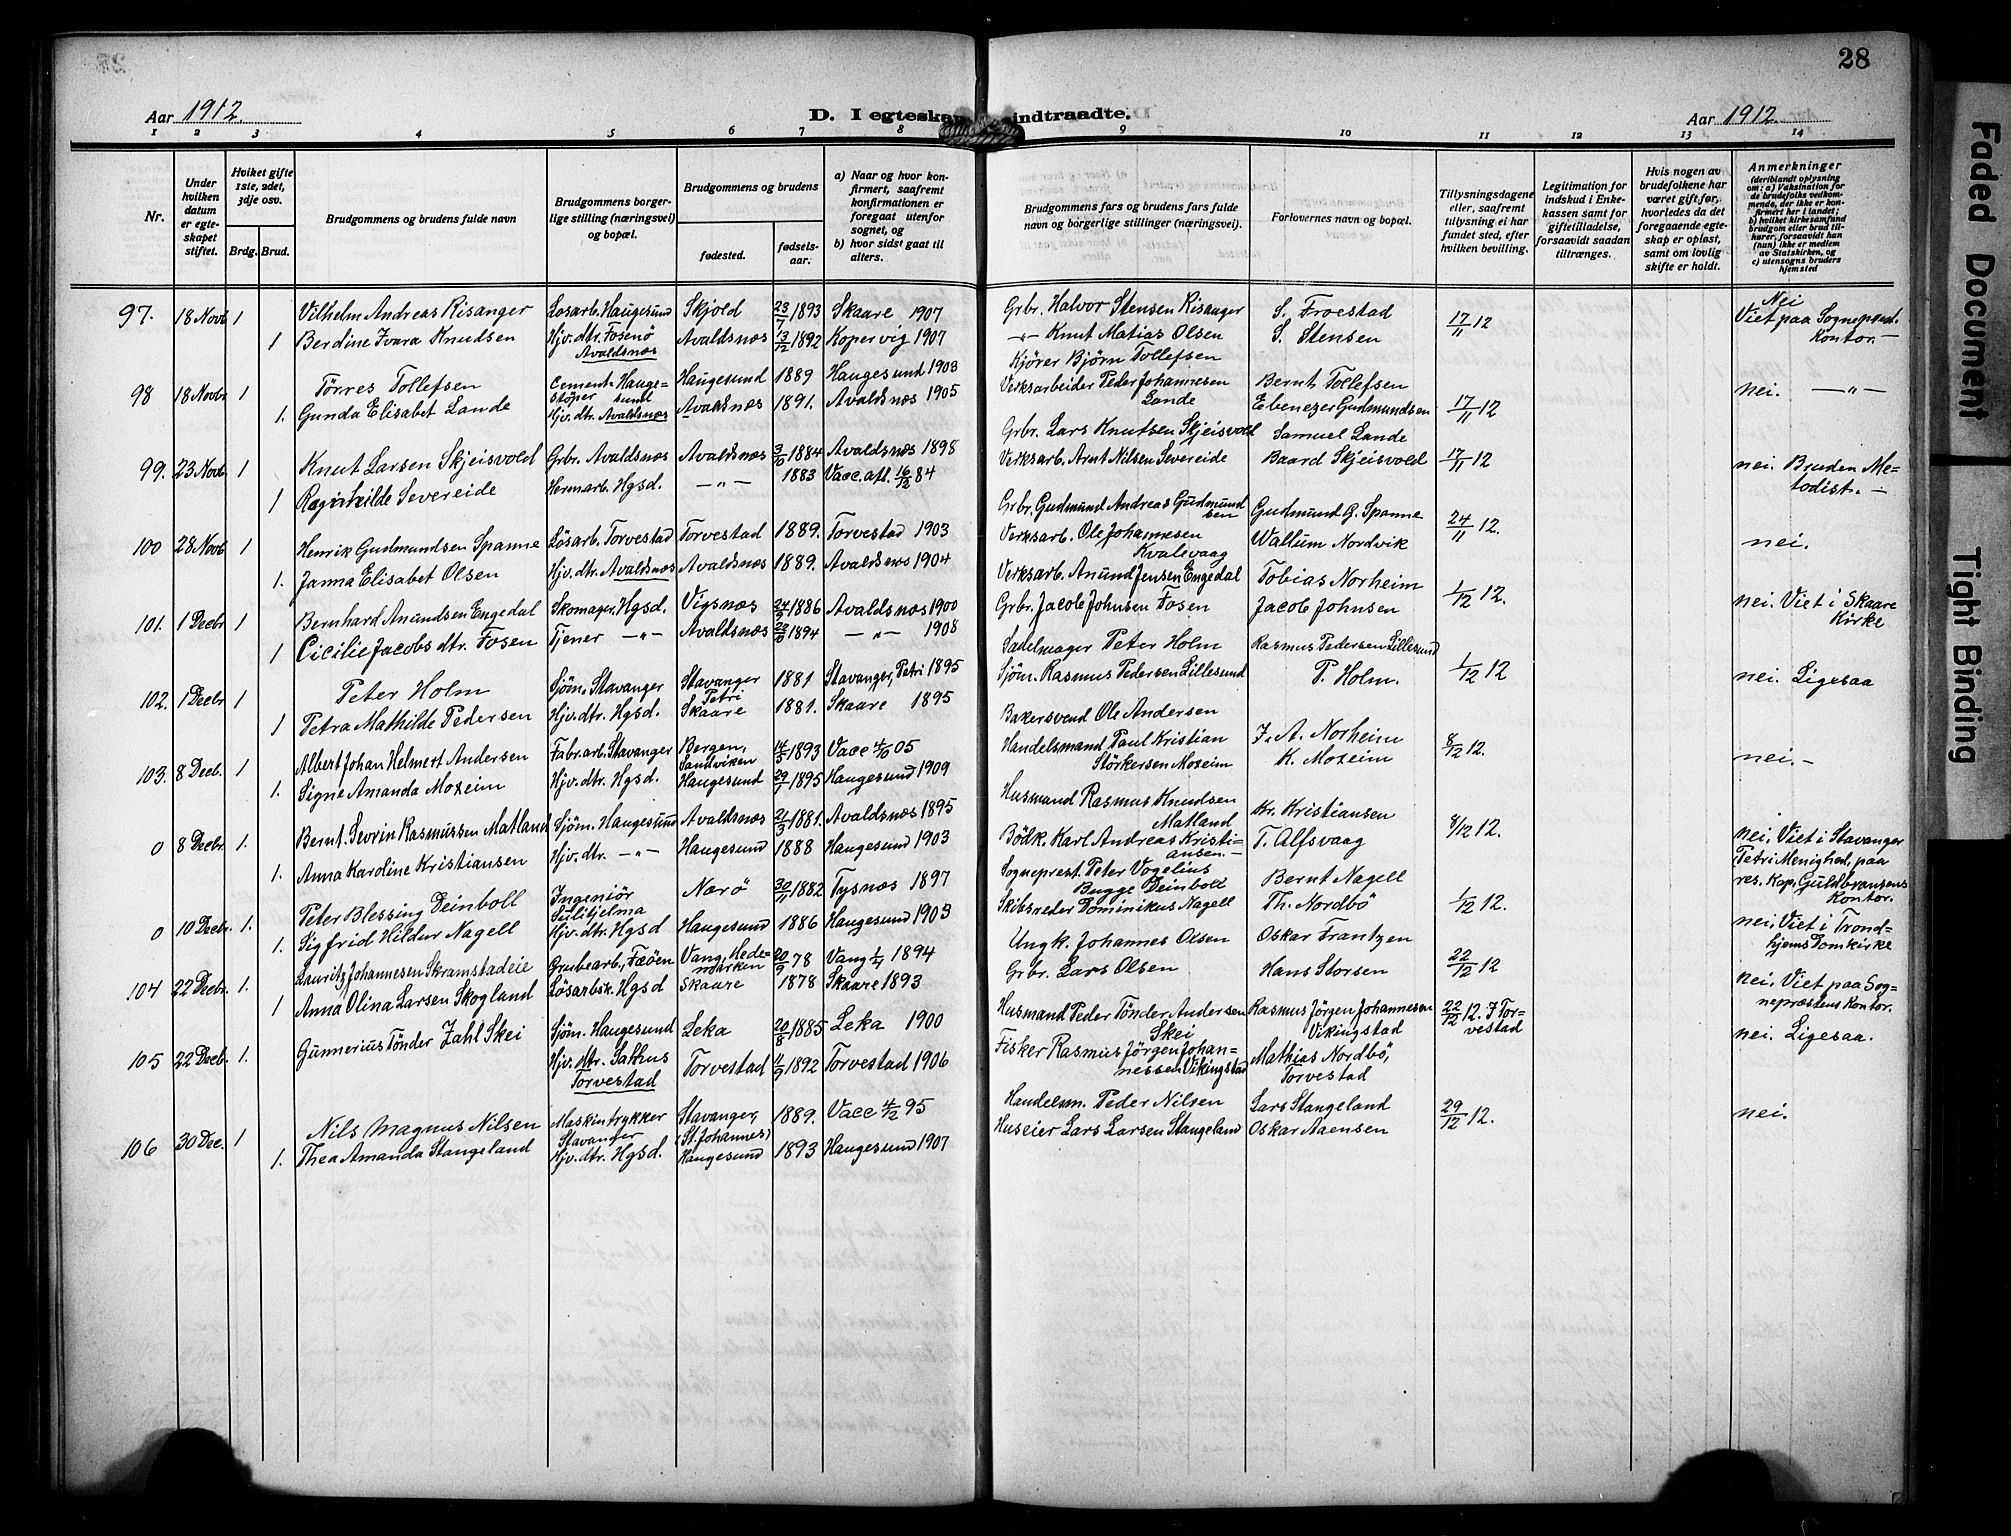 28
Aar 1912.
D. I egteskap indtraadte.
Aar 1912.
1 2 3 4 5 6 7 8 9 10 11 12 13 14
Nr.
Under hvilken datum er egteskapet stiftet.
Hviket gifte 1ste, 2det, 3dje osv.
Brdg. Brud.
Brudgommens og brudens fulde navn
Brudgommens borgerlige stilling (næringsvei) og bopæl.
Brudgommens og brudens
fødested.
fødselsaar.
a) Naar og hvor konfirmert, saafremt konfirmationen er foregaat utenfor sognet, og
b) hvor sidst gaat til alters.
Brudgommens fars og brudens fars fulde navn og borgerlige stillinger (næringsvei).
Forlovernes navn og bopæl.
Tillysningsdagene eller, saafremt tillysning ei har fundet sted, efter hvilken bevilling.
Legitimation for indskud i Enkekassen samt for giftetilladelse, forsaavidt saadan tiltrænges.
Hvis nogen av brudefolkene har været gift før, hvorledes da det foregaaende egteskap er opløst, samt om lovlig skifte er holdt.
Anmerkninger
(deriblandt oplysning om: a) Vaksination for de brudefolks vedkommende, der ikke er konfirmert her i landet; b) hvilket kirkesamfund brudgom eller brud tilhører, forsaavidt han (hun) ikke er medlem av Statskirken, og c) utensogns bruders hjemsted
97. 18 Novb 1 Vilhelm Andreas Risanger Losarb. Haugesund Skjold 23/7 1893 Skaare 1907 Grbr. Halvor Stensen Risanger S. Froestad 17/11 12 Nei Viet paa Sogneprest. Kontor. —
1 Berdine Ivara Knudsen Hjv. dtr. Fosenö Avaldsnæs Avaldsnæs 13/12 1892 Kopervig 1907 -„- Knut Matias Olsen S. Stensen
98 18 Novbr 1 Törres Tollefsen Cement-Haugestöper sund Haugesund 1889 Haugesund 1903 Kjörer Björn Tollefsen Bernt Tollefsen nei. —„—
1. Gunda Elisabet Lande Hjv. dtr. Avaldsnæs Avaldsnæs 1891. Avaldsnæs 1905 Verksarbeider Peder Johannesen Lande Ebenezer Gudmundsen 17/11 12
99. 23 Novb 1 Knut Larsen Skjeisvold Grbr. Avaldsnæs Avaldsnæs 3/10 1884 Avaldsnæs 1898 Grbr. Lars Knutsen Skjeisvold Samuel Lande
1 Ragnhilde Severeide Hermarb. Hgsd. —„— 1883 Vacc. att. 16/12 84 Verksarb. Arnt Nilsen Severeide Baard Skjeisvold 17/11 12 nei. Bruden Metodist. —
100 28 Novb 1 Henrik Gudmundsen Spanne Lösarb. Torvestad Torvestad 1889. Torvestad 1903 Grbr. Gudmund Andreas Gudmundsen Gudmund G. Spanne 24/11 12. nei.
1. Janna Elisabet Olsen Hjv. dtr. Avaldsnæs Avaldsnæs 1889. Avaldsnæs 1904 Verksarb. Ole Johannesen Kvalsvaag Wallum Nordvik
101. 1 Decbr 1 Bernhard Anundsen Engedal Skomager, Hgsd. Vigsnæs 24/9 1886 Avaldsnæs 1900 Verksarb. Anund Jensen Engedal Tobias Norheim 1/12 12. nei. Viet i Skaare Kirke
1 Cicilie Jacobsdtr. Fosen Tjener —„— Avaldsnæs 22/10 1894 —„— 1908 Grbr. Jacob Johnsen Fosen Jacob Johnsen
102. 1 Decbr 1 Peter Holm Sjöm. Stavanger Stavanger Petri 1881 Stavanger, Petri 1895 Sadelmager Peter Holm Rasmus Pedersen Lillesund 1/12 12 nei. Ligesaa
1 Petra Mathilde Pedersen Hjv. dtr. Hgsd. Skaare 1881. Skaare 1895 Sjöm. Rasmus Pedersen Lillesund P. Holm.
103. 8 Decb. 1 Albert Johan Helmert Andersen Fabr. arb. Stavanger Bergen, Sandviken 14/5 1893 Vacc 4/10 05 Bakersvend Ole Andersen J. A. Norheim 8/12 12. nei. -
1. Signe Amanda Mozeim Hjv. dtr. Hgsd. Haugesund 29/1 1895 Haugesund 1909 Handelsmand Paul Kristian Störkersen Mozeim K. Mozeim
0 8 Decbr 1. Bernt Sevrin Rasmussen Matland Sjöm. Haugesund Avaldsnæs 21/3 1881. Avaldsnæs 1895 Husmand Rasmus Knudsen Matland Kr. Kristiansen 8/12 12. nei. Viet i Stavanger Petri Menighed, paa res. Kap. Guldbransens Kontor.
1. Anna Karoline Kristiansen Hjv. dtr. —„— Haugesund 1888 Haugesund 1903 Bödk. Karl Andreas Kristiansen. — T. Alfsvaag
0 10 Decbr. 1. Peter Blessing Deinboll Ingeniör Sulitjelma Nærö 30/11 1882 Tysnæs 1897 Sogneprest Peter Vogelius Bugge Deinboll Bernt Nagell 1/12 12. nei. Viet i Trondhjems Domkirke
1. Sigfrid Hildur Nagell Hjv. dtr. Hgsd Haugesund 1886 Haugesund 1903 Skibsreder Dominikus Nagell Th. Nordbö
104 22 Decbr. 1. Lauritz Johannesen Skramstadeie Grubearb., Fæöen Vang, Hedemarken 20/9 78 Vang 1894 Ungk. Johannes Olsen Oskar Frantzen 22/12 12 nei. Viet paa Sognepræstens Kontor.
1 Anna Olina Larsen Skogland Lösarbsk. Hgsd Skaare 1878 Skaare 1893 Grbr. Lars Olsen Hans Storsen
105 22 Decb. 1. Gunnerius Tönder Zahl Skei Sjöm. Haugesund Leka 20/8 1885 Leka 1900 Husmand Peder Tönder Andersen Skei Rasmus Jörgen Johannesen Vikingstad 22/12 12. I Torvestad nei. Ligesaa.
Hjv. dtr. Sakhus Torvestad Torvestad 4/9 1892 Torvestad 1906 Fisker Rasmus Jörgen Johannessen Vikingstad Mathias Nordbö, Torvestad
106 30 Dec. 1 Nils Magnus Nilsen Maskintrykker Stavanger Stavanger, (St. Johannes) 1889. Vacc 4/12 95 Handelsm. Peder Nilsen Lars Stangeland 29/12 12. nei.
1. Thea Amanda Stangeland Hjv. dtr. Hgsd. Haugesund 1893 Haugesund 1907 Huseier Lars Larsen Stangeland Oskar Aaensen
Faded Document
Tight Binding